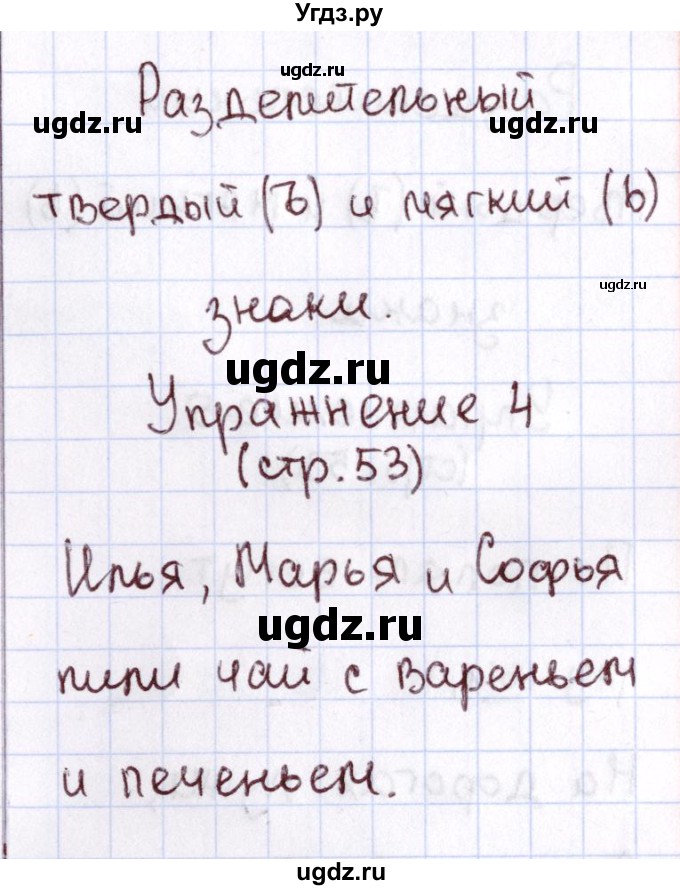 Угдз.ру
ugdz.ru
Разделительный
ugdz.ru ugdz.ru
твердый (Ъ) и мягкий (Ь)
ugdz.ru
знаки.
ugdz.ru
Упражнение 4
(стр. 53)
Илья, Марья и Софья
ugdz.ru
пили чай с вареньем
и печеньем.
ugdz.ru